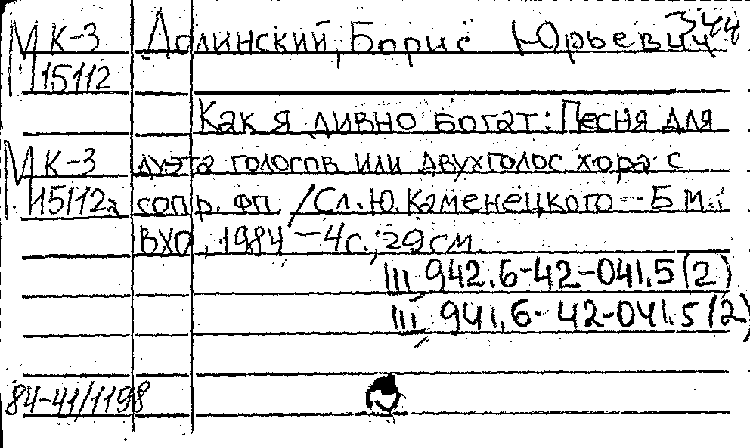 МК-3 Долинский, Борис Юрьевич 344
15112
Как я дивно богат: Песня для
МК-3 дуэта голосов или двухголос. хора с
15112а сопр. фп. / Сл. Ю. Каменецкого. – Б. м.:
ВХО, 1984 – 4с.; 29см.
Ш 942.6-42-041.5(2)
Ш 941.6-42-041.5(2)
84-41/1198